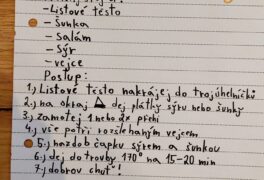 -Listové těsto
- Šunka
- Salám
- Sýr
- vejce
Postup:
1.) Listové těsto nakrájej do trojúhelníčků
2.) na okraj dej plátky sýru nebo šunky
3.) zamotej 1 nebo 2x
4.) vše potři rozšlehaným vejcem
5.) nazdob čapku sýrem a šunkou
6.) dej do trouby 170° na 15-20 min
7.) dobrou chuť!